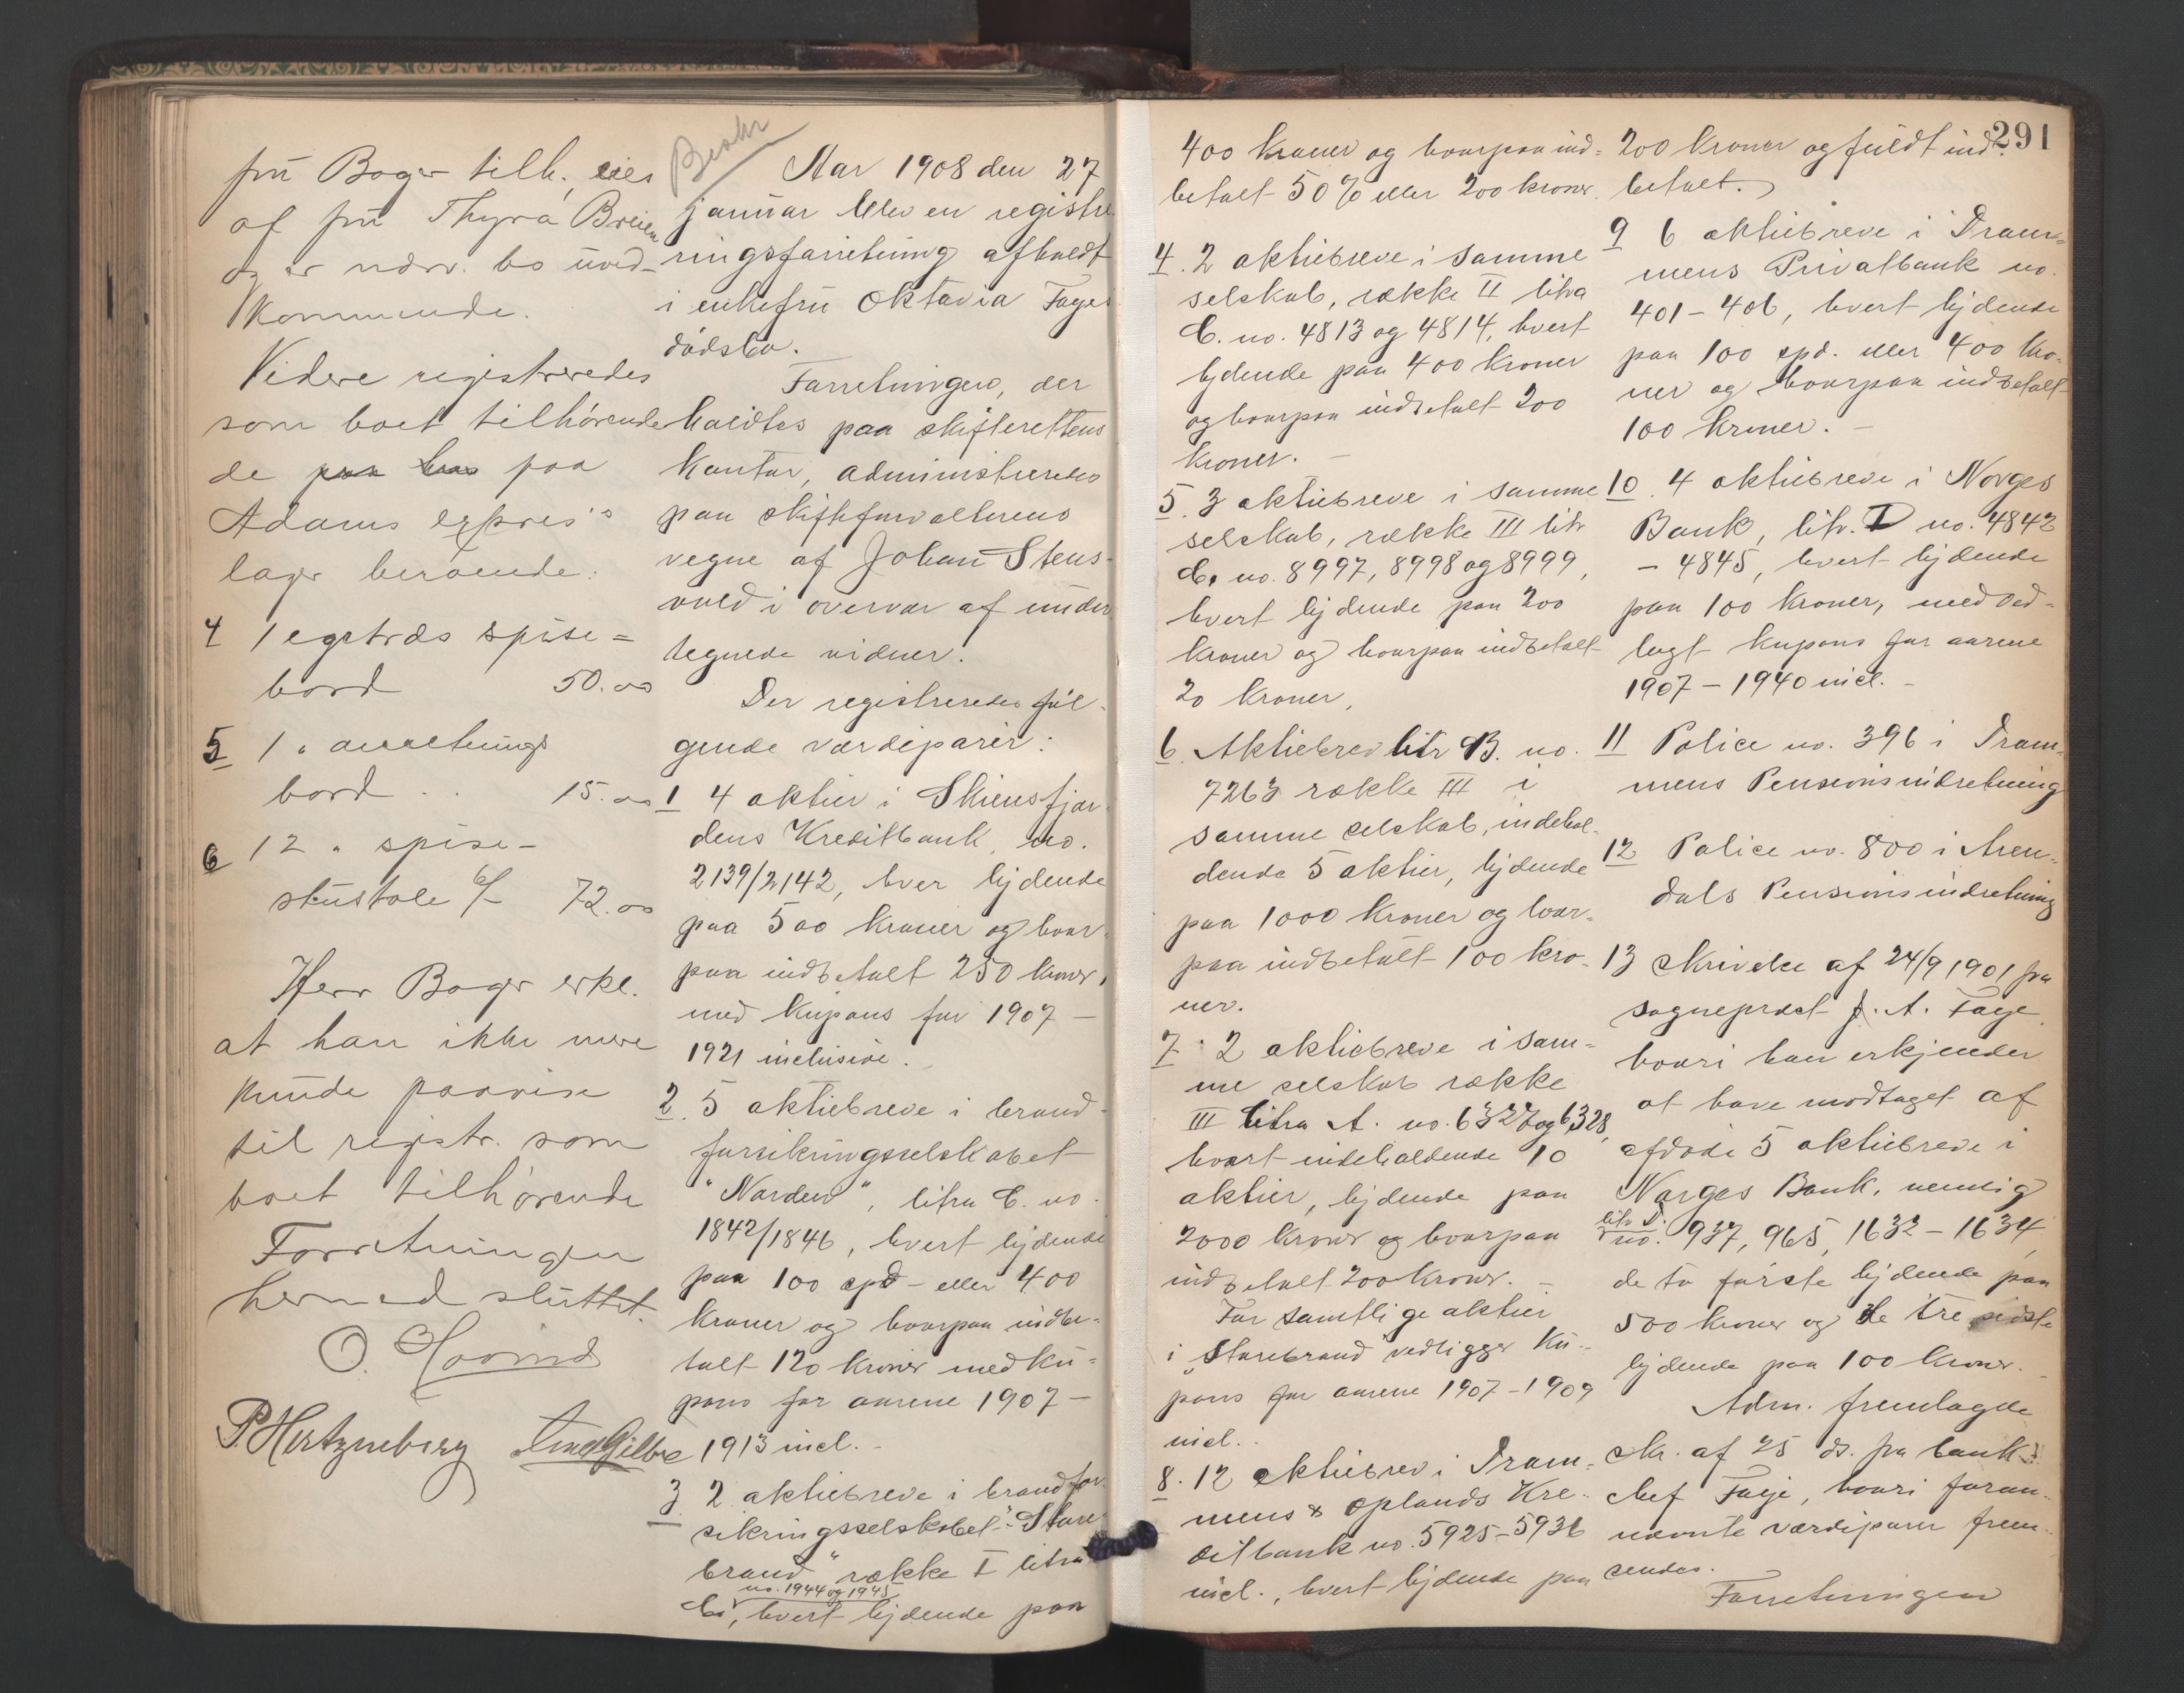 frü Boger tilh. eies
af frü Thyra Breien
og er nærv. bo üved-
kommende.
Videre registreredes
som boet tilhörende
de paa hos paa
Adams express's
lager beroende:
4 1 egetræs spise-
bord 50.00
5 1 " anretnings
bord . . 15.00
6 12 " spise-
stüstole 6/- 72.00
Herr Boger erkl.
at han ikke mere
künde paavise
til registr. som
boet tilhørende
Forretningen
hermed slüttet.
P. Hertzneberg
Aar 1908 den 27
januar blev en registre
ringsforretning afholdt
i enkefrü Oktavia Fayes
dödsbo.
Forretningen, der
holdtes paa skifterettens
kontor, administreredes
paa skifteforvalterens
vegne af Johan Stens-
vold i overvær af under
tegnede vidner.
Der registreredes föl-
gende værdiparir:
1 4 aktier i Skiensfjor
dens Kreditbank, no.
2139/2142, hver lydende
paa 500 kroner og hvor-
paa indbetalt 250 kroner,
med küpons for 1907 -
1921 inclusive.
2. 5 aktiebreve i brand-
forsikringsselskabet
"Norden", litra C. no.
1842/1846, hvert lydende
paa 100 spd - eller 400
kroner og hvorpaa indbe-
talt 120 kroner med kü-
pons for aarene 1907 -
1913 incl. -
3 2 aktiebreve i brandfor-
sikringsselskabet "Store
brand" række I litra
no. 1944 og 1945
C., hvert lydende paa
291
400 kroner og hvorpaa ind-
betalt 50% eller 200 kroner.
4. 2 aktiebreve i samme
selskab, række II litra
C. no. 4813 og 4814, hvert
lydende paa 400 kroner
og hvorpaa indbetalt 200
kroner. -
5. 3 aktiebreve i samme
selskab, række III litr
C. no. 8997, 8998 og 8999,
hvert lydende paa 200
kroner og hvorpaa indbetalt
20 kroner,
6. Aktiebrev litr B. no.
7263 række III i
samme selskab, indehol-
dende 5 aktier, lydende
paa 1000 kroner og hvor-
paa indbetalt 100 kro-
ner.
7. 2 aktiebreve i sam-
me selskab række
III litra A. no. 6327 og 6328,
hvert indeholdende 10
aktier, lydende paa
2000 kroner og hvorpaa
indbetalt 200 kroner. -
For samtlige aktier
i Storebrand vedligger kü-
pons for aarene 1907-1909
incl. -
8. 12 aktiebrev i Dram-
mens & Oplands Kre-
ditbank no. 5925-5936
incl., hvert lydende paa
200 kroner og füldt ind-
betalt.
9 6 aktiebreve i Dram-
mens Privatbank no.
401-406, hvert lydende
paa 100 spd. eller 400 kro-
ner og hvorpaa indbetalt
100 kroner. -
10. 4 aktiebreve i Norges
Bank, litr. D no. 4842
- 4845, hvert lydende
paa 100 kroner, med ved-
lagt kupons for aarene
1907-1940 incl. -
11 Police no. 396 i Dram-
mens Pensionsindretning
12 Police no. 800 i Aren-
dals Pensionsindretning
13 skrivelse af 24/9 1901 fra
sogneprest J. A. Faye,
hvori han erkjender
at have modtaget af
afdöde 5 aktiebreve i
Norges Bank, nemlig
litr D.
no. 937, 965, 1632-1634,
de to förste lydende paa
500 kroner og de tre sidste
lydende paa 100 kroner.
Adm. fremlagde
skr. af 25 ds. fra bank-
chef Faye, hvori foran-
nævnte værdiparir frem-
sendes.
Forretningen